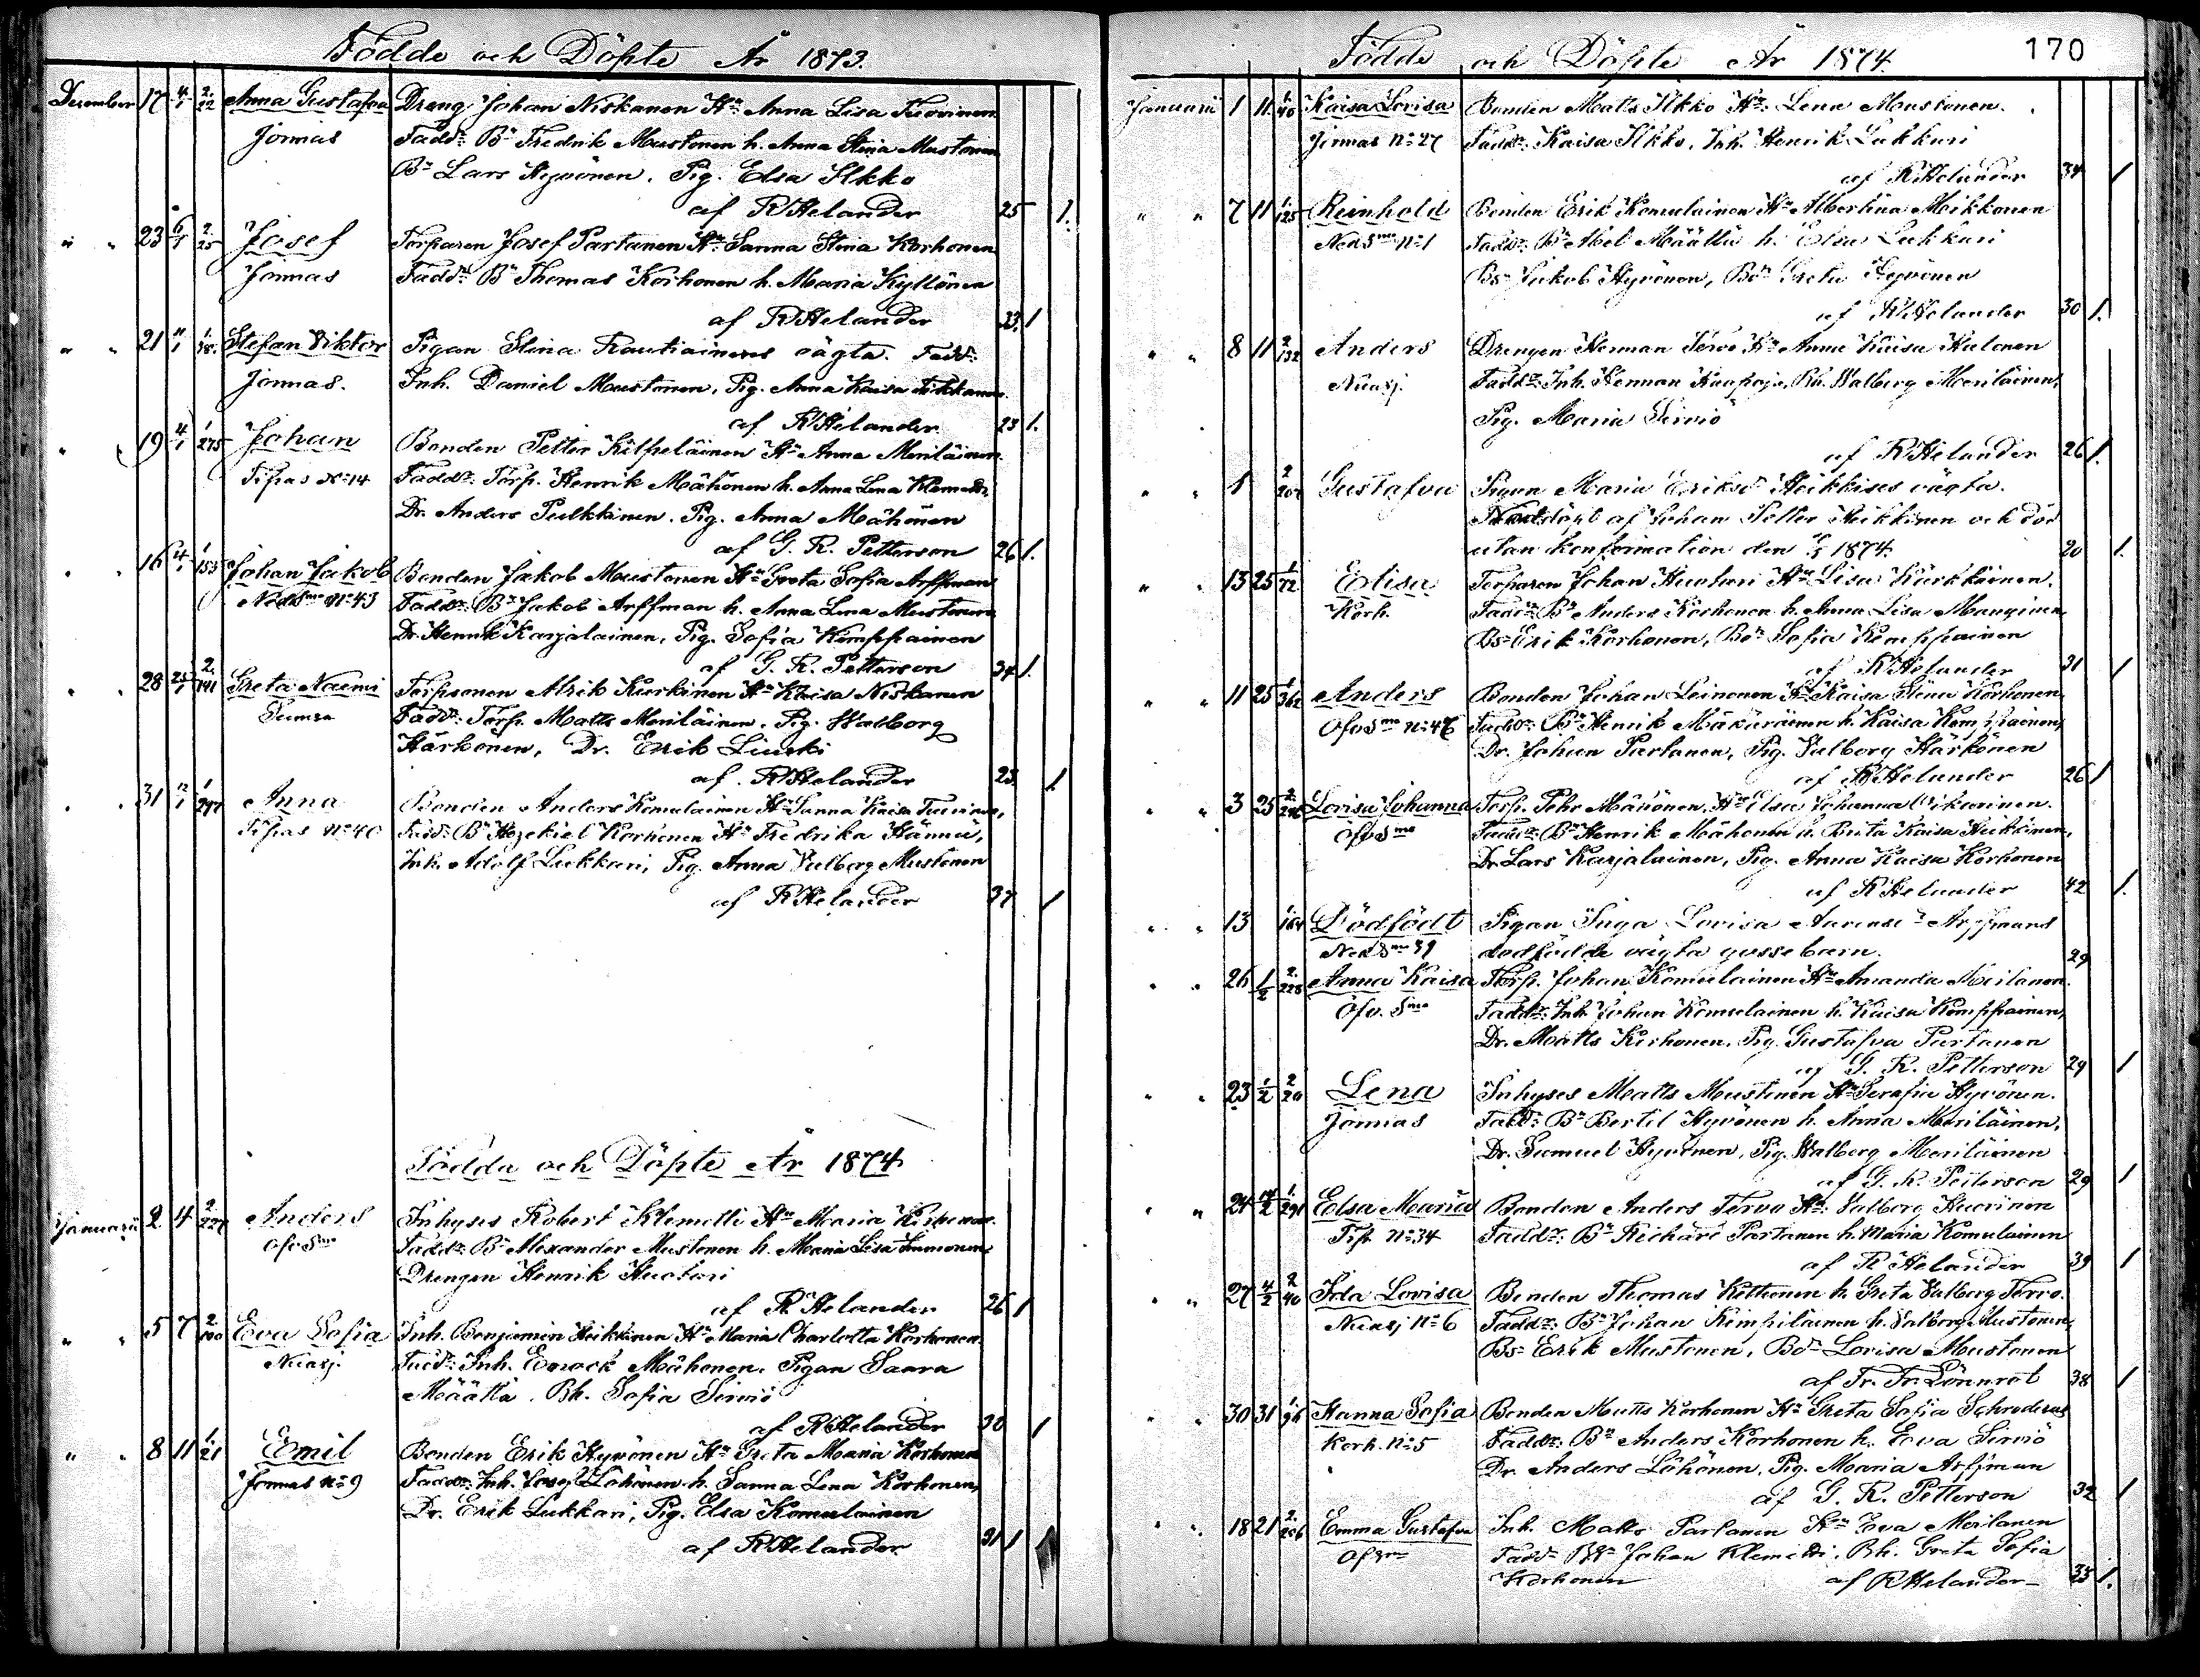 Födde och Döpte År 1873.
December 17 4/1 2/22 Anna Gustafva Dräng Johan Niskanen Hu Anna Lisa Tuovinen
Jormas Fadd: Bn Fredrik Mustonen h. Anna Stina Mustonen
Bn Lars Hyvönen. Pig. Elsa Ilkko
af R Helander 25 1.
" " 23 6/1 2/25 Josef Torparen Josef Partanen Hu Sanna Stina Korhonen
Jormas Fadd: Bn Thomas Korhonen h. Maria Kyllönen
af R Helander 23. 1
" " 21 11/1 1/38. Stefan Viktor Pigan Stina Rautiainens oägta. Fadd:
Jormas. Inh. Daniel Mustonen, Pig. Anna Kaisa
af R Helander 23 1.
" 19 4/1 1/275 Johan Bonden Petter Kilpeläinen Hu Anna Meriläinen
Tipas No 14 Fadd: Torp. Henrik Mähönen h. Anna Lena Klemetti,
Dr. Anders Pulkkinen. Pig. Anna Mähönen
af G. R. Petterson 26 1.
" " 16 4/1 1/153 Johan Jakob Bonden Jakob Mustonen Hu Greta Sofia Arffman
Ned Smo No 43 Fadd: Bn Jakob Arffman h. Anna Lena Mustonen
Dr Henrik Karjalainen, Pig. Sofia Kemppainen
af G. R. Petterson 34 1.
" " 28 25/1 2/141 Greta Naemi Torpsonen Alrik Kurkinen Hu Kaisa Niskanen
Sumsa Fadd: Torp. Matts Meriläinen. Pig. Walborg
Härkönen, Dr. Erik Liuski
af. R Helander 23 1
" " 31 12/1 1/297 Anna Bonden Anders Komulainen Hu Sanna Kaisa Tuovinen,
Tipas No 40 Fadd: Bn Hezekiel Korhonen Hu Fredrika Hannu,
Inh. Adolf Lukkari, Pig. Anna Valborg Mustonen
af R Helander 37 1
Födda och Döpte År 1874.
Januarii 2 4 2/227 Anders Inhyses Robert Klemetti Hu Maria
Ofv Smo Fadd: Bn Alexander Mustonen h. Maria Lisa Immonen,
Drengen Henrik Huotari
af R Helander 26 1
" " 5 7 2/100 Eva Sofia Inh. Benjamin Heikkinen Hu Maria Charlotta Korhonen
Nuasj. Fadd: Inh. Enock Mähönen. Pigan Saara
Määttä. Bh. Sofia Sirviö
af R Helander 30 1
" " 8 11 1/21 Emil Bonden Erik Hyvönen Hu Greta Maria Korhonen
Jormas No 9 Fadd: Inh. Josef Löhönen h. Sanna Lena Korhonen,
Dr. Erik Lukkari, Pig. Elsa Komulainen
af R Helander 31 1
Födde och Döpte År 1874. 170
Januarii 1 11. 1/40 Kaisa Lovisa Bonden Matts Ilkko Hu Lena Mustonen.
Jormas No 27 Fadd: Kaisa Ilkko, Inh. Henrik Lukkari
af R Helander 34 1
" " 7 11 1/125 Reinhold Bonden Erik Komulainen Hu Albertina Mikkonen
Ned Smo No 1 Fadd: Bn Abel Määttä h. Elsa Lukkari
Bs Jakob Hyvönen, Bd Greta Hyvönen
af R Helander 30 1.
" " 8 11 2/132 Anders Drengen Herman Tervo Hu Anna Kaisa Halonen
Nuasj. Fadd: Inh. Herman Haapoja, Bh. Walborg Meriläinen,
Pig. Maria Sirviö
af R Helander 26 1.
" " 1 Gustafva Pigan Maria Eriksd Heikkises oägta.
Nöddöpt af Johan Petter Heikkinen och död
utan konfirmation den 1874. 20 1.
" " 13 25 1/72 Elisa Torparen Johan Huotari Hu Lisa Karkkainen.
Korh. Fadd: Bn Anders Korhonen h. Anna Lisa Manninen
Bs Erik Korhonen, Bd Sofia Kemppainen
af R Helander 31 1
" " 11 25 1/362 Anders Bonden Johan Leinonen Hu Kaisa Stina Korhonen
Ofv Smo No 46 Fadd: Bn Henrik Mäkäräinen h. Kaisa Kemppainen,
Dr. Johan Partanen, Pig. Valborg Härkönen
af R Helander 26 1
" " 3 25 Lovisa Johanna Torp. Pehr Mähönen. Hu Elsa Johanna
Ofv Smo Fadd: Bn Henrik Mähönen h. Brita Kaisa Heikkinen,
Dr. Lars Karjalainen, Pig. Anna Kaisa Korhonen
af R Helander 42 1.
" " 13 1/164 Dödfödt Pigan Inga Lovisa Arffmans
Ned Smo 39 dödfödde oägta gossebarn. 29
" " 26 1/2 2/228 Anna Kaisa Torp. Johan Komulainen Hu Amanda Meilanen.
Ofv. Smo Fadd: Inh. Johan Komulainen h. Kaisa Kemppainen,
Dr. Matts Korhonen, Pig. Gustafva Partanen
af G. R. Petterson 29 1
" " 23 1/2 2/20 Lena Inhyses Matts Mustonen Hu Serafia Hyvönen.
Jormas Fadd: Bn Bertil Hyvönen h. Anna Meriläinen,
Dr. Samuel Hyvönen, Pig. Walborg Meriläinen
af G. R. Petterson 29 1
" " 24 1/291 Elsa Maria Bonden Anders Tervo Hu Valborg Huovinen
Tip. No 34 Fadd: Bn Richard Partanen h. Maria Komulainen
af R Helander 39 1
" " 27 4/2 2/40 Ida Lovisa Bonden Thomas Kettunen h. Greta Valborg Tervo.
Nuasj No 6 Fadd: Bn Johan Kempilainen h. Valborg Mustonen,
Bs Erik Mustonen, Bd Lovisa Mustonen
af Fr. Fr. Lönnrot 38 1
" " 30 31 1/96 Hanna Sofia Bonden Matts Korhonen Hu Greta Sofia Schroderus
Korh. No 5 Fadd: Bn Anders Korhonen h. Eva Sirviö
Dr. Anders Löhönen, Pig. Maria Arffman
af G. R. Petterson 32 1
" " 18 21 2/206 Emma Gustafva Inh. Matts Partanen Hu Eva Meilanen
Of Smo Fadd: Bn Johan Klemetti, Bh. Greta Sofia
Korhonen af R Helander 33 1.